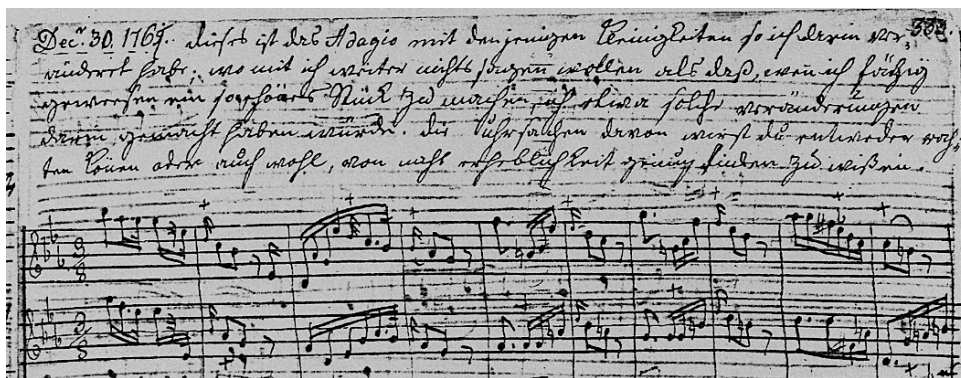 Dec.r 30. 1761. dieses ist das Adagio mit denjenigen Kleinigkeiten so ich darin ver= 333
ändert habe; wo mit ich weiter nichts sagen wollen als daß, wen ich fähig
gewesen ein so schönes Stück zu machen, ich etwa solche veränderungen
darin gemacht haben würde. die uhrsachen davon wirst du entweder rah=
ten können oder auch wohl, von nicht erheblichkeit genug finden zu wißen.
3/8
3/8